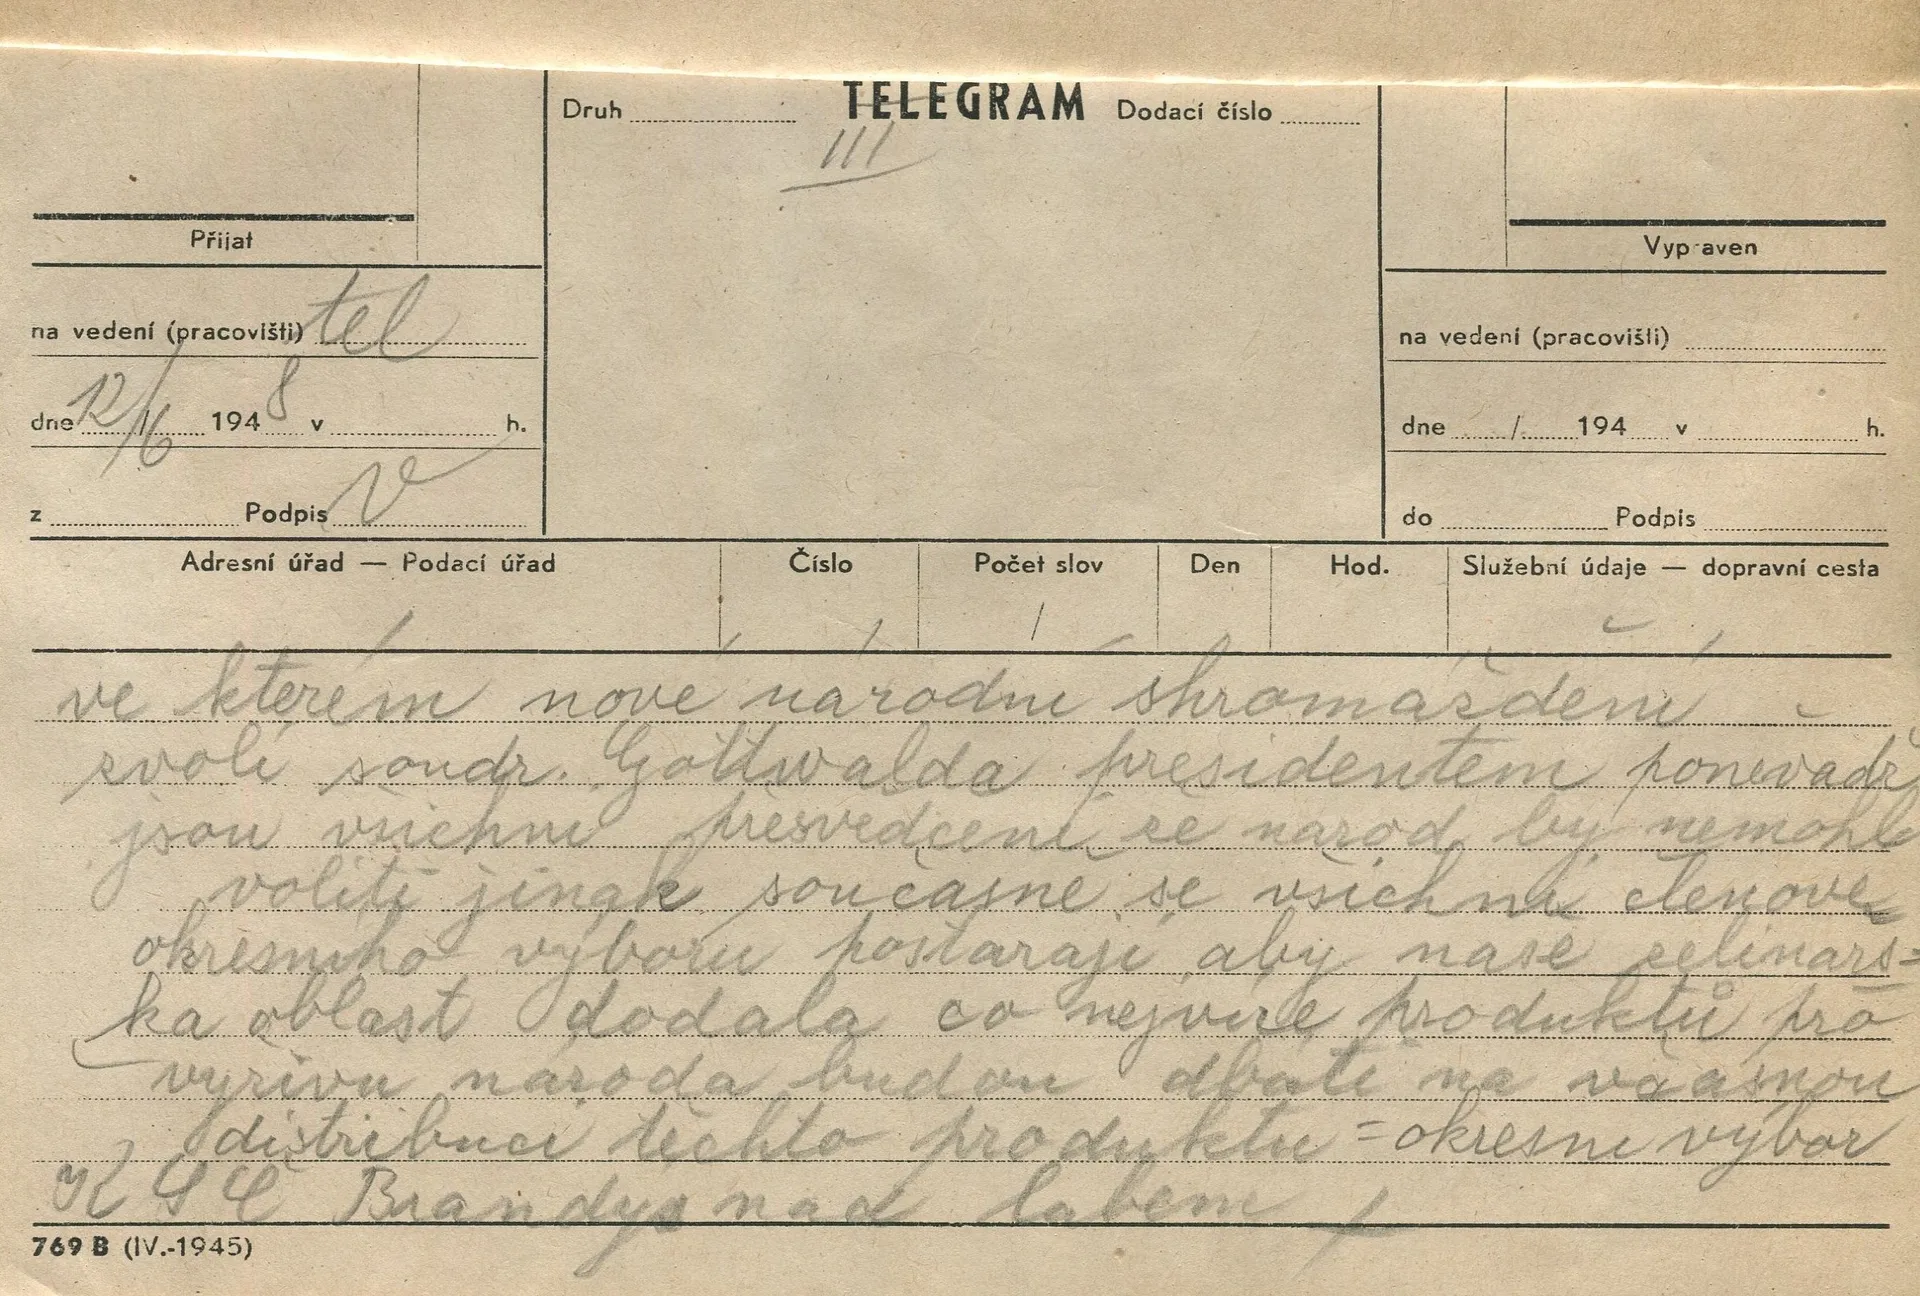 TELEGRAM
Druh Dodací číslo
III
Přijat
Vypraven
na vedení (pracovišti) tel
na vedení (pracovišti)
dne 12/6 1948 v h.
dne / 194 v h.
z Podpis V
do Podpis
Adresní úřad — Podací úřad Číslo Počet slov Den Hod. Služební údaje — dopravní cesta
ve kterém nové národní shromáždění
zvolí soudr. Gottwalda presidentem poněvadž
jsou všichni přesvědčeni že národ by nemohl
voliti jinak současně se všichni členové
okresního výboru postarají aby naše zelinářs=
ka oblast dodala co nejvíce produktů pro
vyživu národa budou dbáti na včasnou
distribuci těchto produktu = okresni výbor
KSČ Brandys nad labem
769 B (IV.-1945)